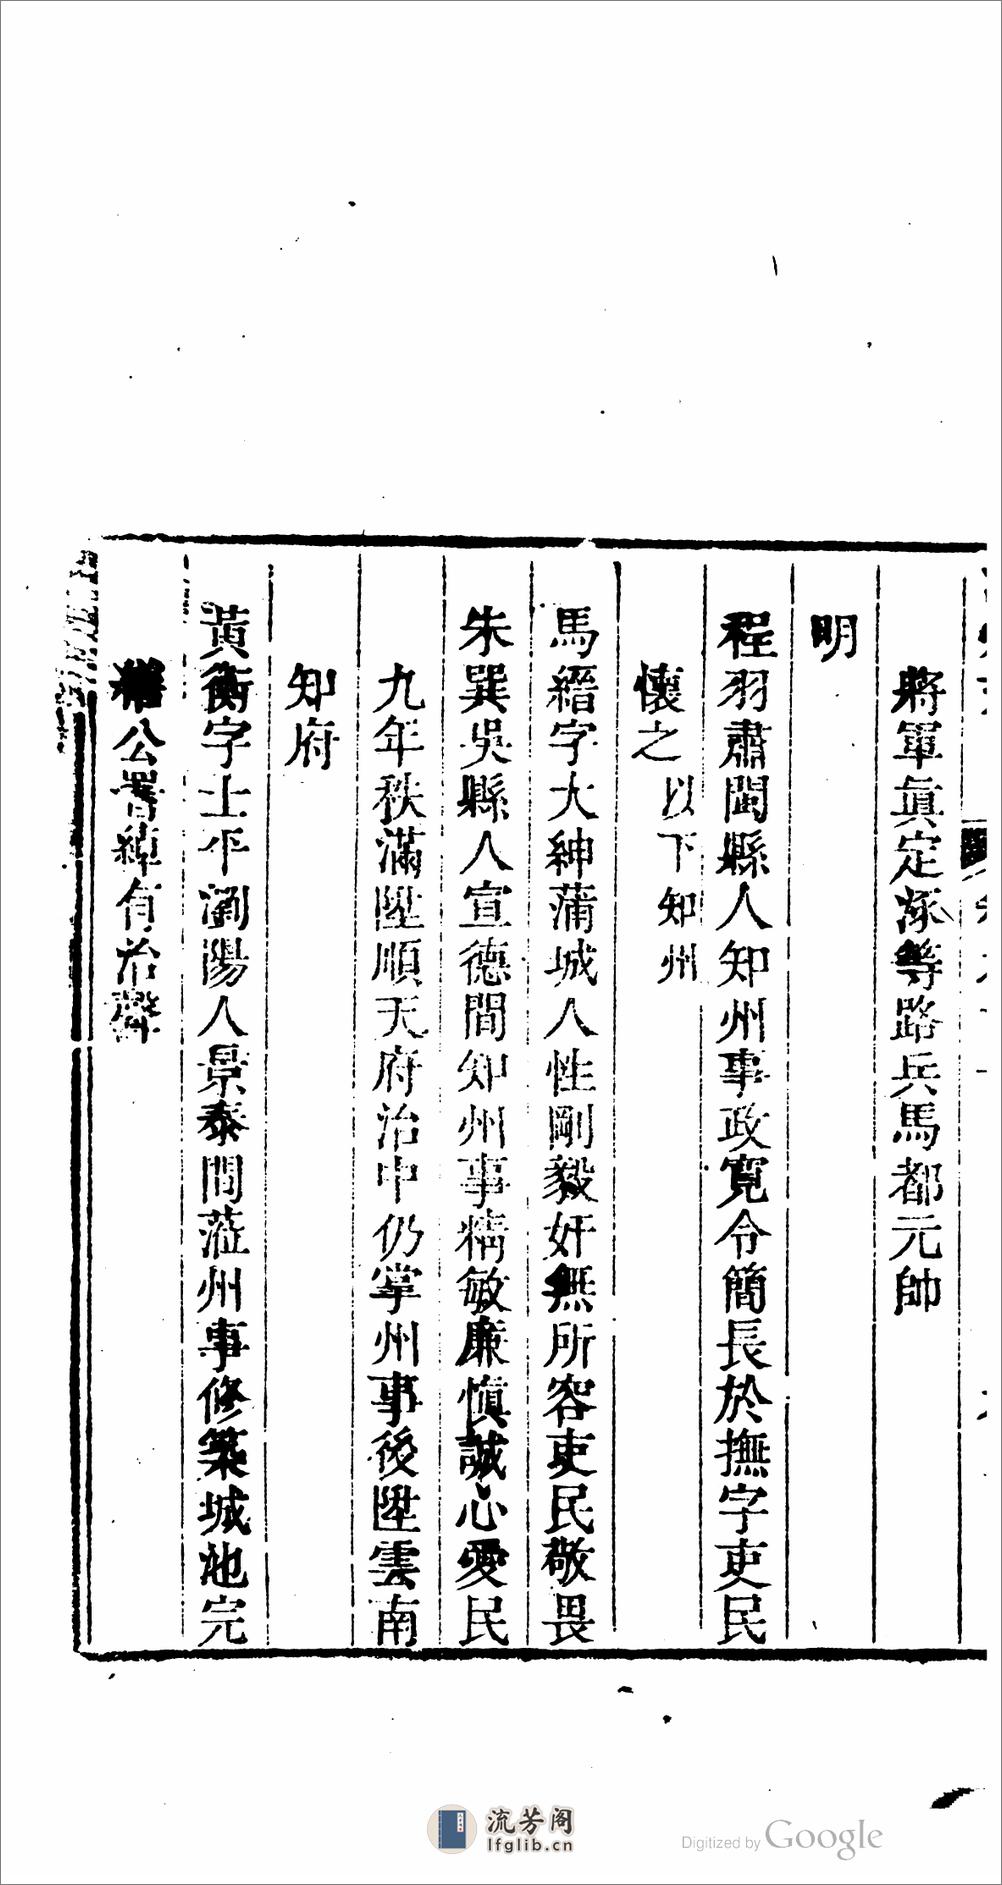 將軍眞定涿等路兵馬都元帥
明
程羽肅閩縣人知州事政寬令簡長於撫字吏民
懷之以下知州
馬縉字大紳蒲城人性剛毅奸無所容吏民敬畏
朱巽吳縣人宣德間知州事精敏廉愼誠心愛民
九年秩滿陞順天府治中仍掌州事後陞雲南
知府
黃衡字士平瀏陽人景泰間蒞州事修築城池完
公署綽有治聲
流芳阁
lfglib.cn
Digitized by Google